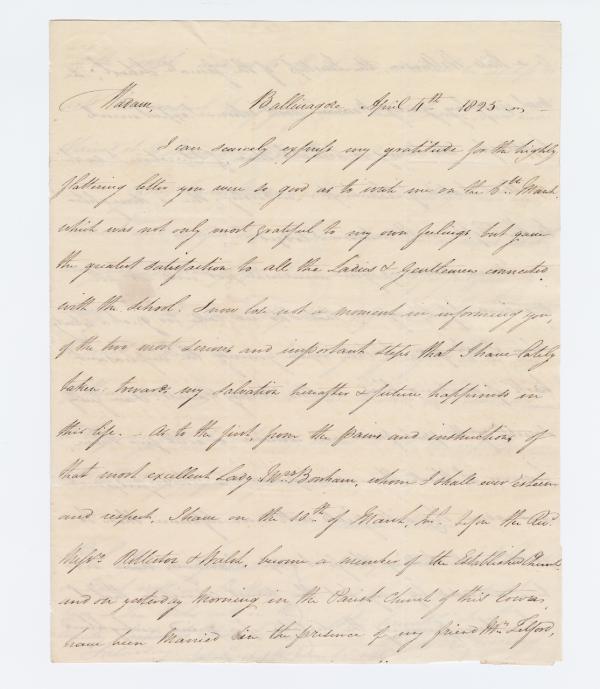 Madam, Ballinagore April 4th 1825
I can scarcely express my gratitude for the highly
flattering letter you were so good as to write me on the 6th March
which was not only most grateful to my own feelings, but gave
the greatest satisfaction to all the Ladies & Gentlemen connected
with the school. I now lose not a moment in informing you,
of the two most serious and important steps that I have lately
taken towards my salvation hereafter & future happiness in
this life. – As to the first, from the pains and instructions of
that most excellent Lady Mrs Bonham, whom I shall ever esteem
and respect, I have on the 10th of March, before the Revd
Messrs Rolleston & Walsh, become a member of the Established Church
and on yesterday morning in the Parish Church of this town,
have been Married in the presence of my friend Mr Telford,